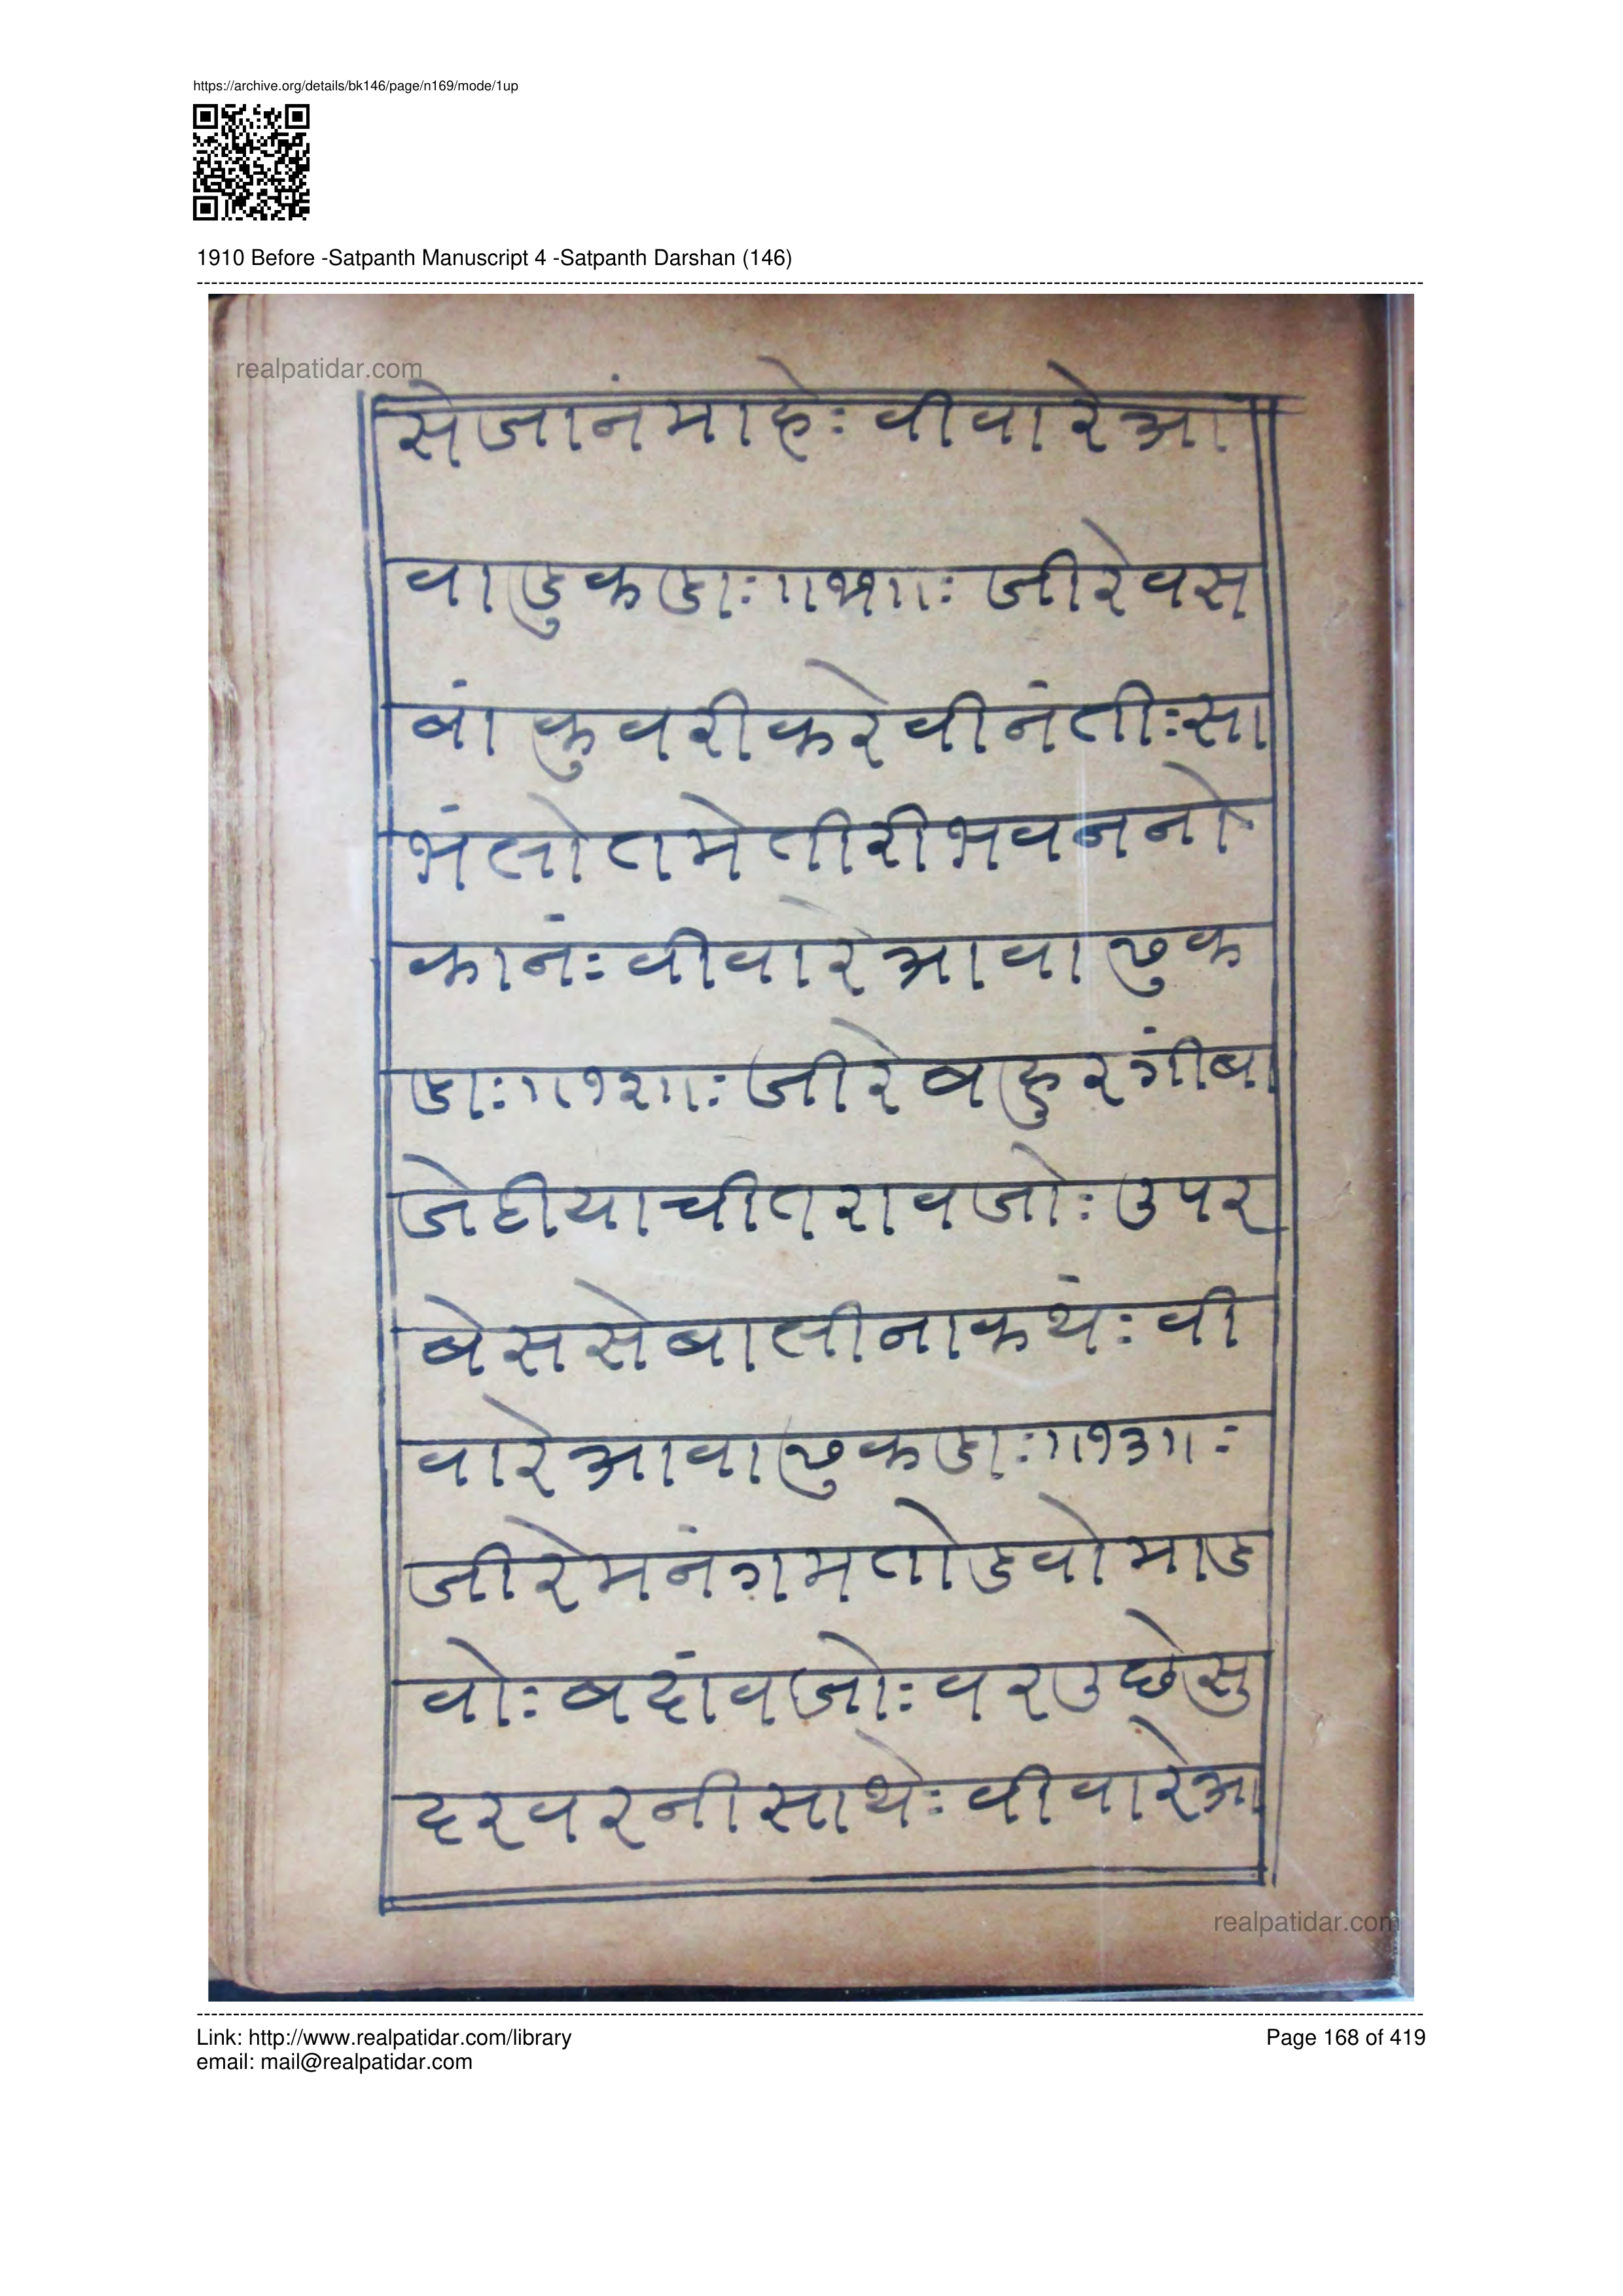 https://archive.org/details/bk146/page/n169/mode/1up
1910 Before -Satpanth Manuscript 4 -Satpanth Darshan (146)
realpatidar.com
सेजानंमाहेः वीवारेआ
वाडुकडाः॥११॥ः जीरेवस
बां कुवरीकरेवीनंतीःसा
भंलोतमेतीरीभवननो
कानंः वीवारेआवाळुक
डाः॥१२॥ः जीरेबहुरगींबा
जेठीयाचीतरावजोः उपर
बेससेबालीनाकथंः वी
वारेआवाळुकडाः॥१३॥ः
जीरेमनंगमतोडवोमाड
वोः बदांवजोः वरउछेसु
दरवरनीसाथेः वीवारेआ
realpatidar.com
Link: http://www.realpatidar.com/library
Page 168 of 419
email: mail@realpatidar.com